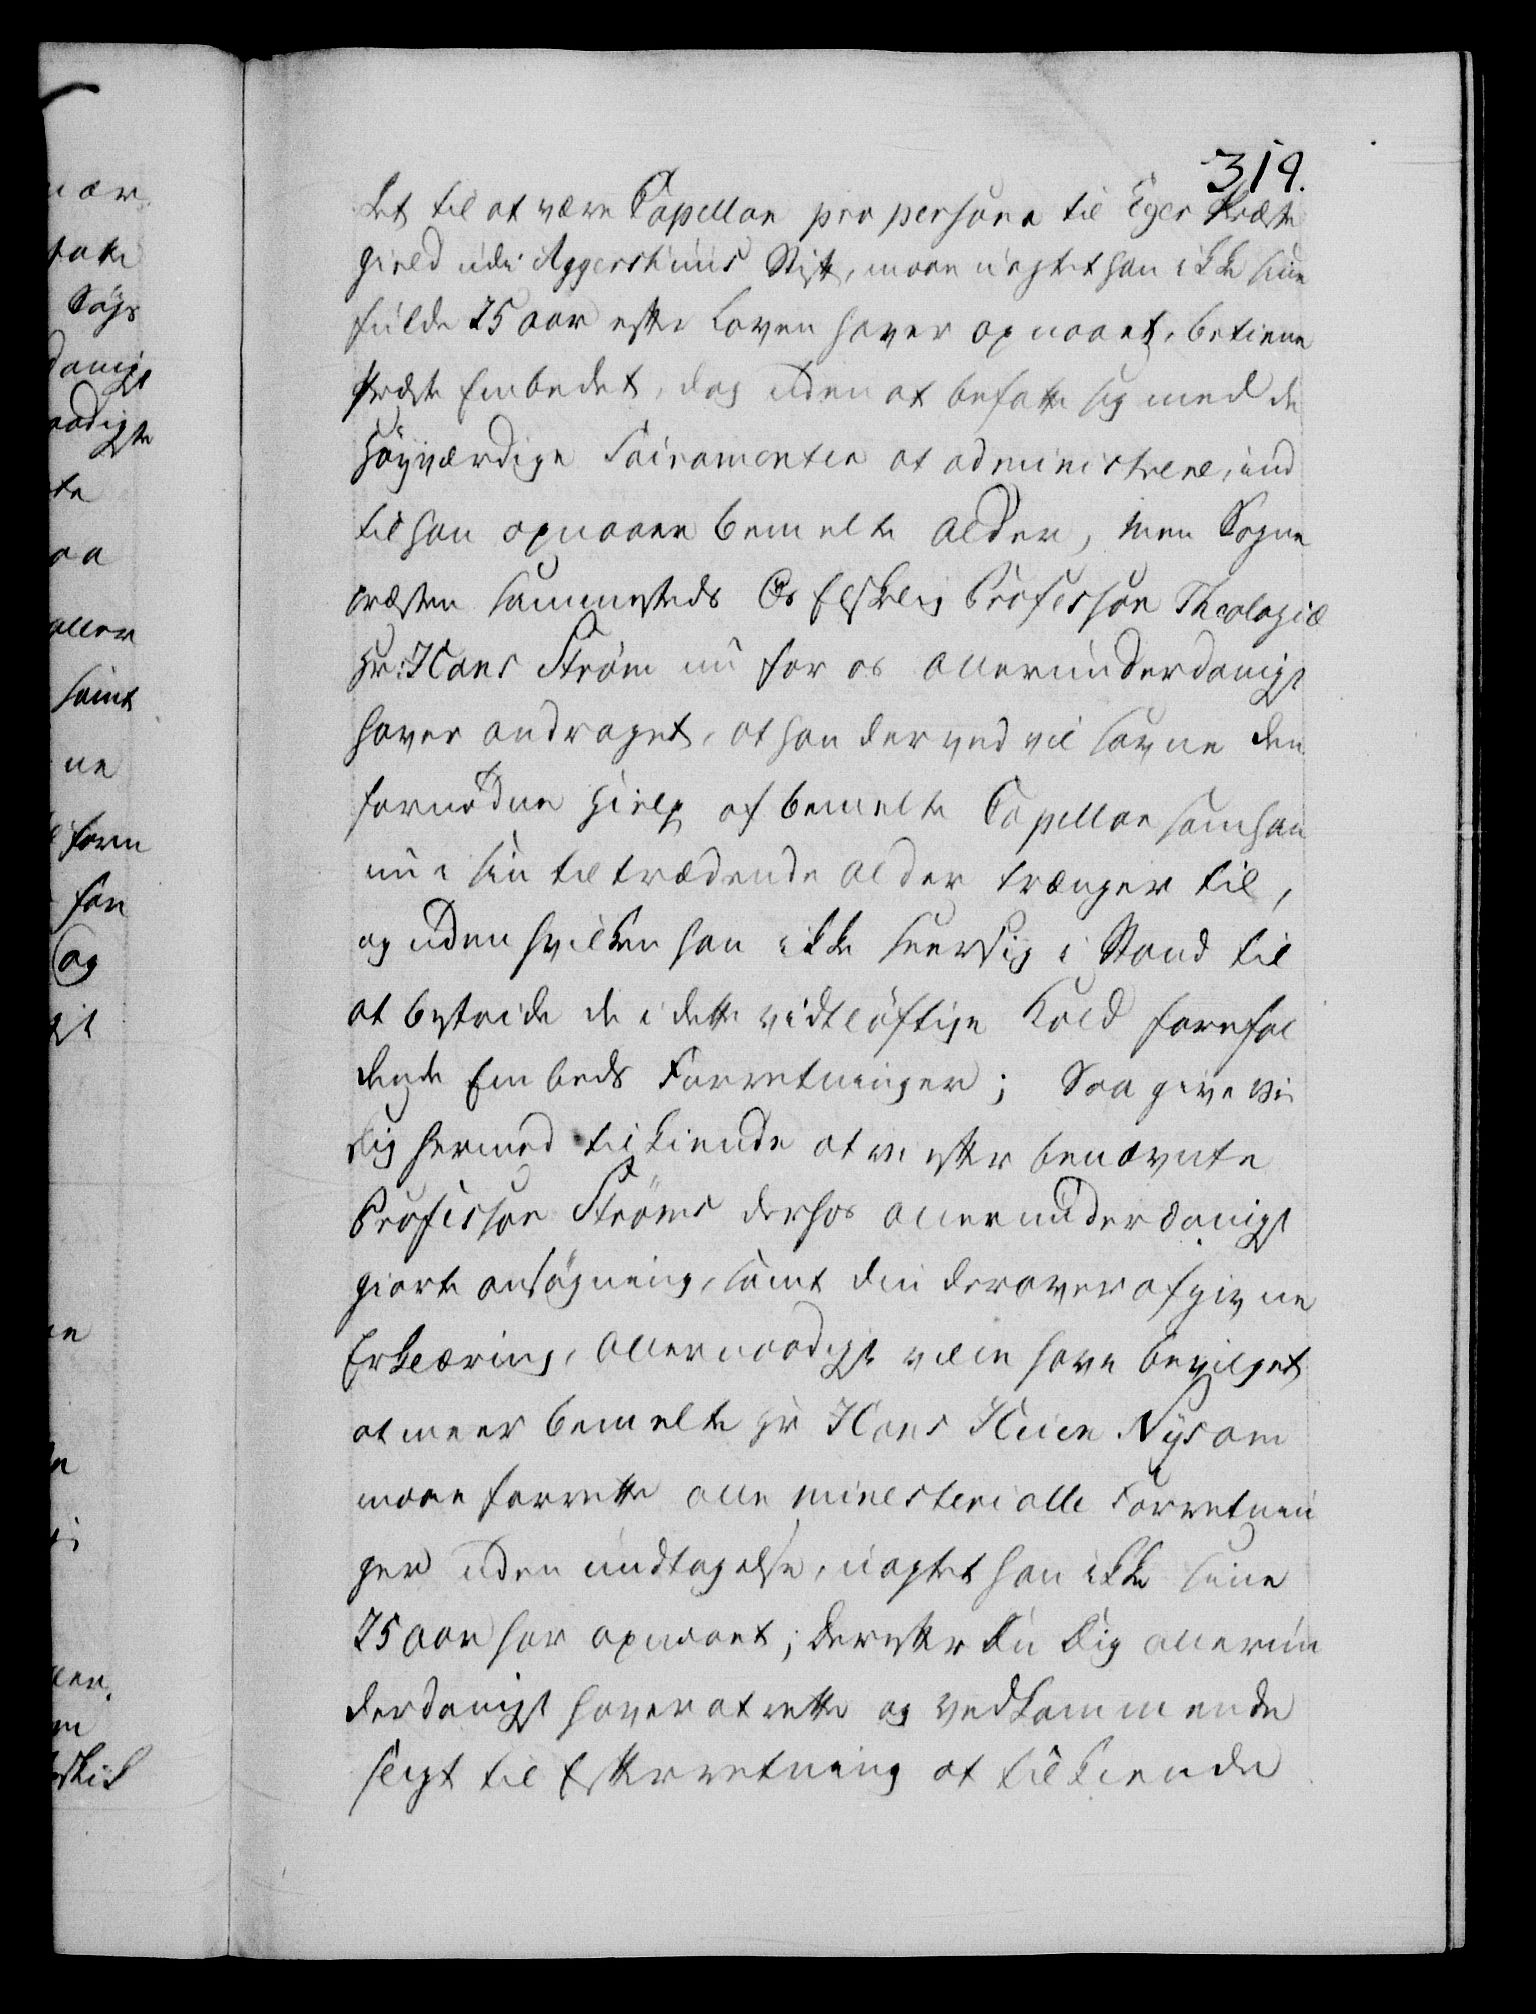 319.
det til at være Capellan pro persona til Eger Præste
gield udi Aggershuus Stift, maae uagtet han ikke sine
fulde 25 aar efter Loven haver opnaaet, betiene
Præste Embedet, dog uden at befatte sig med de
Høyværdige Sacramenter at administrere, ind
til han opnaaer bemelte Alder, men Sogne
præsten sammesteds Os Elskelig Professor Theologiæ
Hr: Hans Strøm nu for os allerunderdanigst
haver andraget, at han derved vil savne den
fornødne Hielp af bemelte Capellan som han
nu i sin tiltrædende Alder trænger til,
og uden hvilken han ikke seer sig i Stand til
at bestride de i dette vidtløftige Kald forefal
dende Embeds Forretninger; Saa give Vi
dig hermed tilkiende at vi efter benævnte
Professor Strøms derhos allerunderdanigst
giorte ansøgning, samt din derover afgivne
Erklæring, allernaadigst ville have bevilget
at meer bemelte Hr Hans Heien Nysom
maae forrette alle ministerialle Forretnin
ger uden undtagelse, uagtet han ikke sine
25 aar har opnaaet; derefter Du Dig allerun
derdanigst haver at rette og vedkommende
sligt til Efterretning at tilkiende